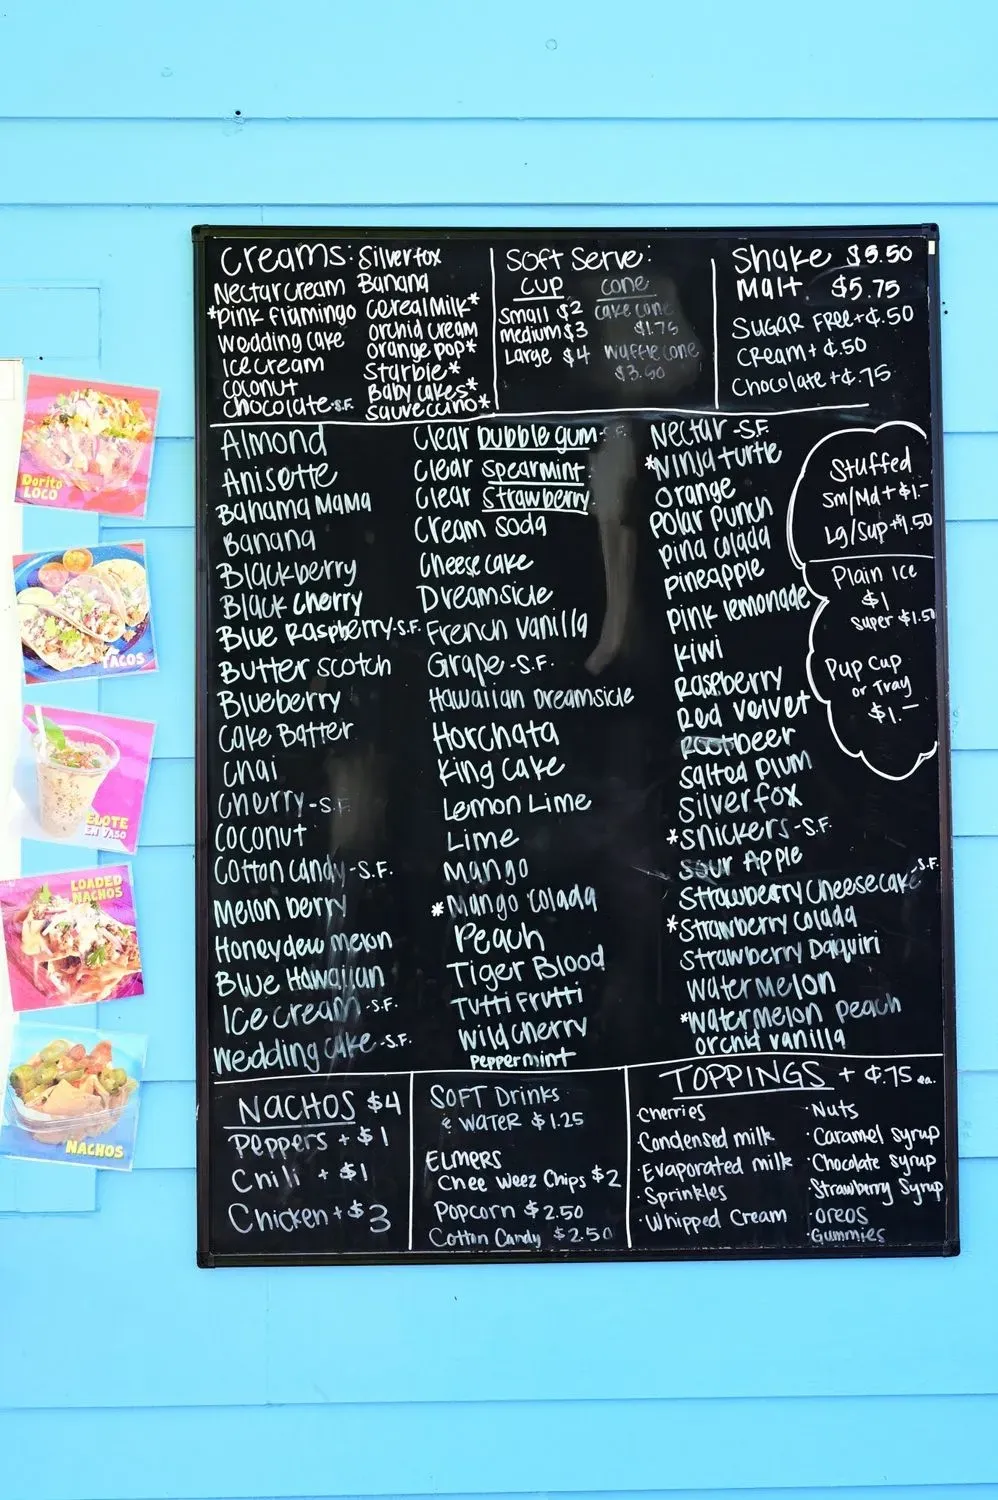 Creams:
Nectar cream
*Pink Flamingo
Wedding cake
Ice cream
Coconut
Chocolate-S.F.
Silverfox
Banana
Cereal Milk*
Orchid Cream
Orange pop*
Starbie*
Baby Cakes*
Sauveccino*
Soft Serve:
CUP
Small $2
Medium $3
Large $4
Cone
Cake Cone
$1.75
Waffle cone
$3.50
Shake $5.50
Malt $5.75
SUGAR FREE+¢.50
CREAM+¢.50
Chocolate+¢.75
Almond
Anisette
Bahama Mama
Banana
Blackberry
Black Cherry
Blue Raspberry-S.F.
Butter scotch
Blueberry
Cake Batter
Chai
Cherry-S.F.
Coconut
Cotton Candy-S.F.
Melon berry
Honeydew melon
Blue Hawaiian
Ice cream-S.F.
Wedding cake-S.F.
Clear bubble gum-S.F.
Clear Spearmint
Clear Strawberry
Cream soda
Cheese cake
Dreamsicle
French vanilla
Grape-S.F.
Hawaiian Dreamsicle
Horchata
King Cake
Lemon Lime
Lime
Mango
*Mango Colada
Peach
Tiger Blood
Tutti Frutti
Wild Cherry
Peppermint
Nectar-S.F.
*Ninja turtle
Orange
Polar Punch
Pina colada
Pineapple
Pink lemonade
Kiwi
Raspberry
Red Velvet
Rootbeer
Salted Plum
Silverfox
*Snickers-S.F.
Sour Apple
Strawberry Cheesecake-S.F.
*Strawberry Colada
Strawberry Daquiri
Watermelon
*Watermelon Peach
Orchid vanilla
Stuffed
Sm/Md+$1.-
Lg/Sup+$1.50
Plain Ice
$1
Super $1.50
Pup Cup
or Tray
$1.-
NACHOS $4
Peppers + $1
Chili + $1
Chicken + $3
SOFT Drinks
& WATER $1.25
ELMERS
Chee Weez Chips $2
Popcorn $2.50
Cotton Candy $2.50
TOPPINGS + ¢.75 ea.
·Cherries
·Condensed milk
·Evaporated milk
·Sprinkles
·Whipped Cream
·Nuts
·Caramel syrup
·Chocolate syrup
·Strawberry Syrup
·OREOS
·Gummies
Dorito
LOCO
TACOS
ELOTE
EN VASO
LOADED
NACHOS
NACHOS